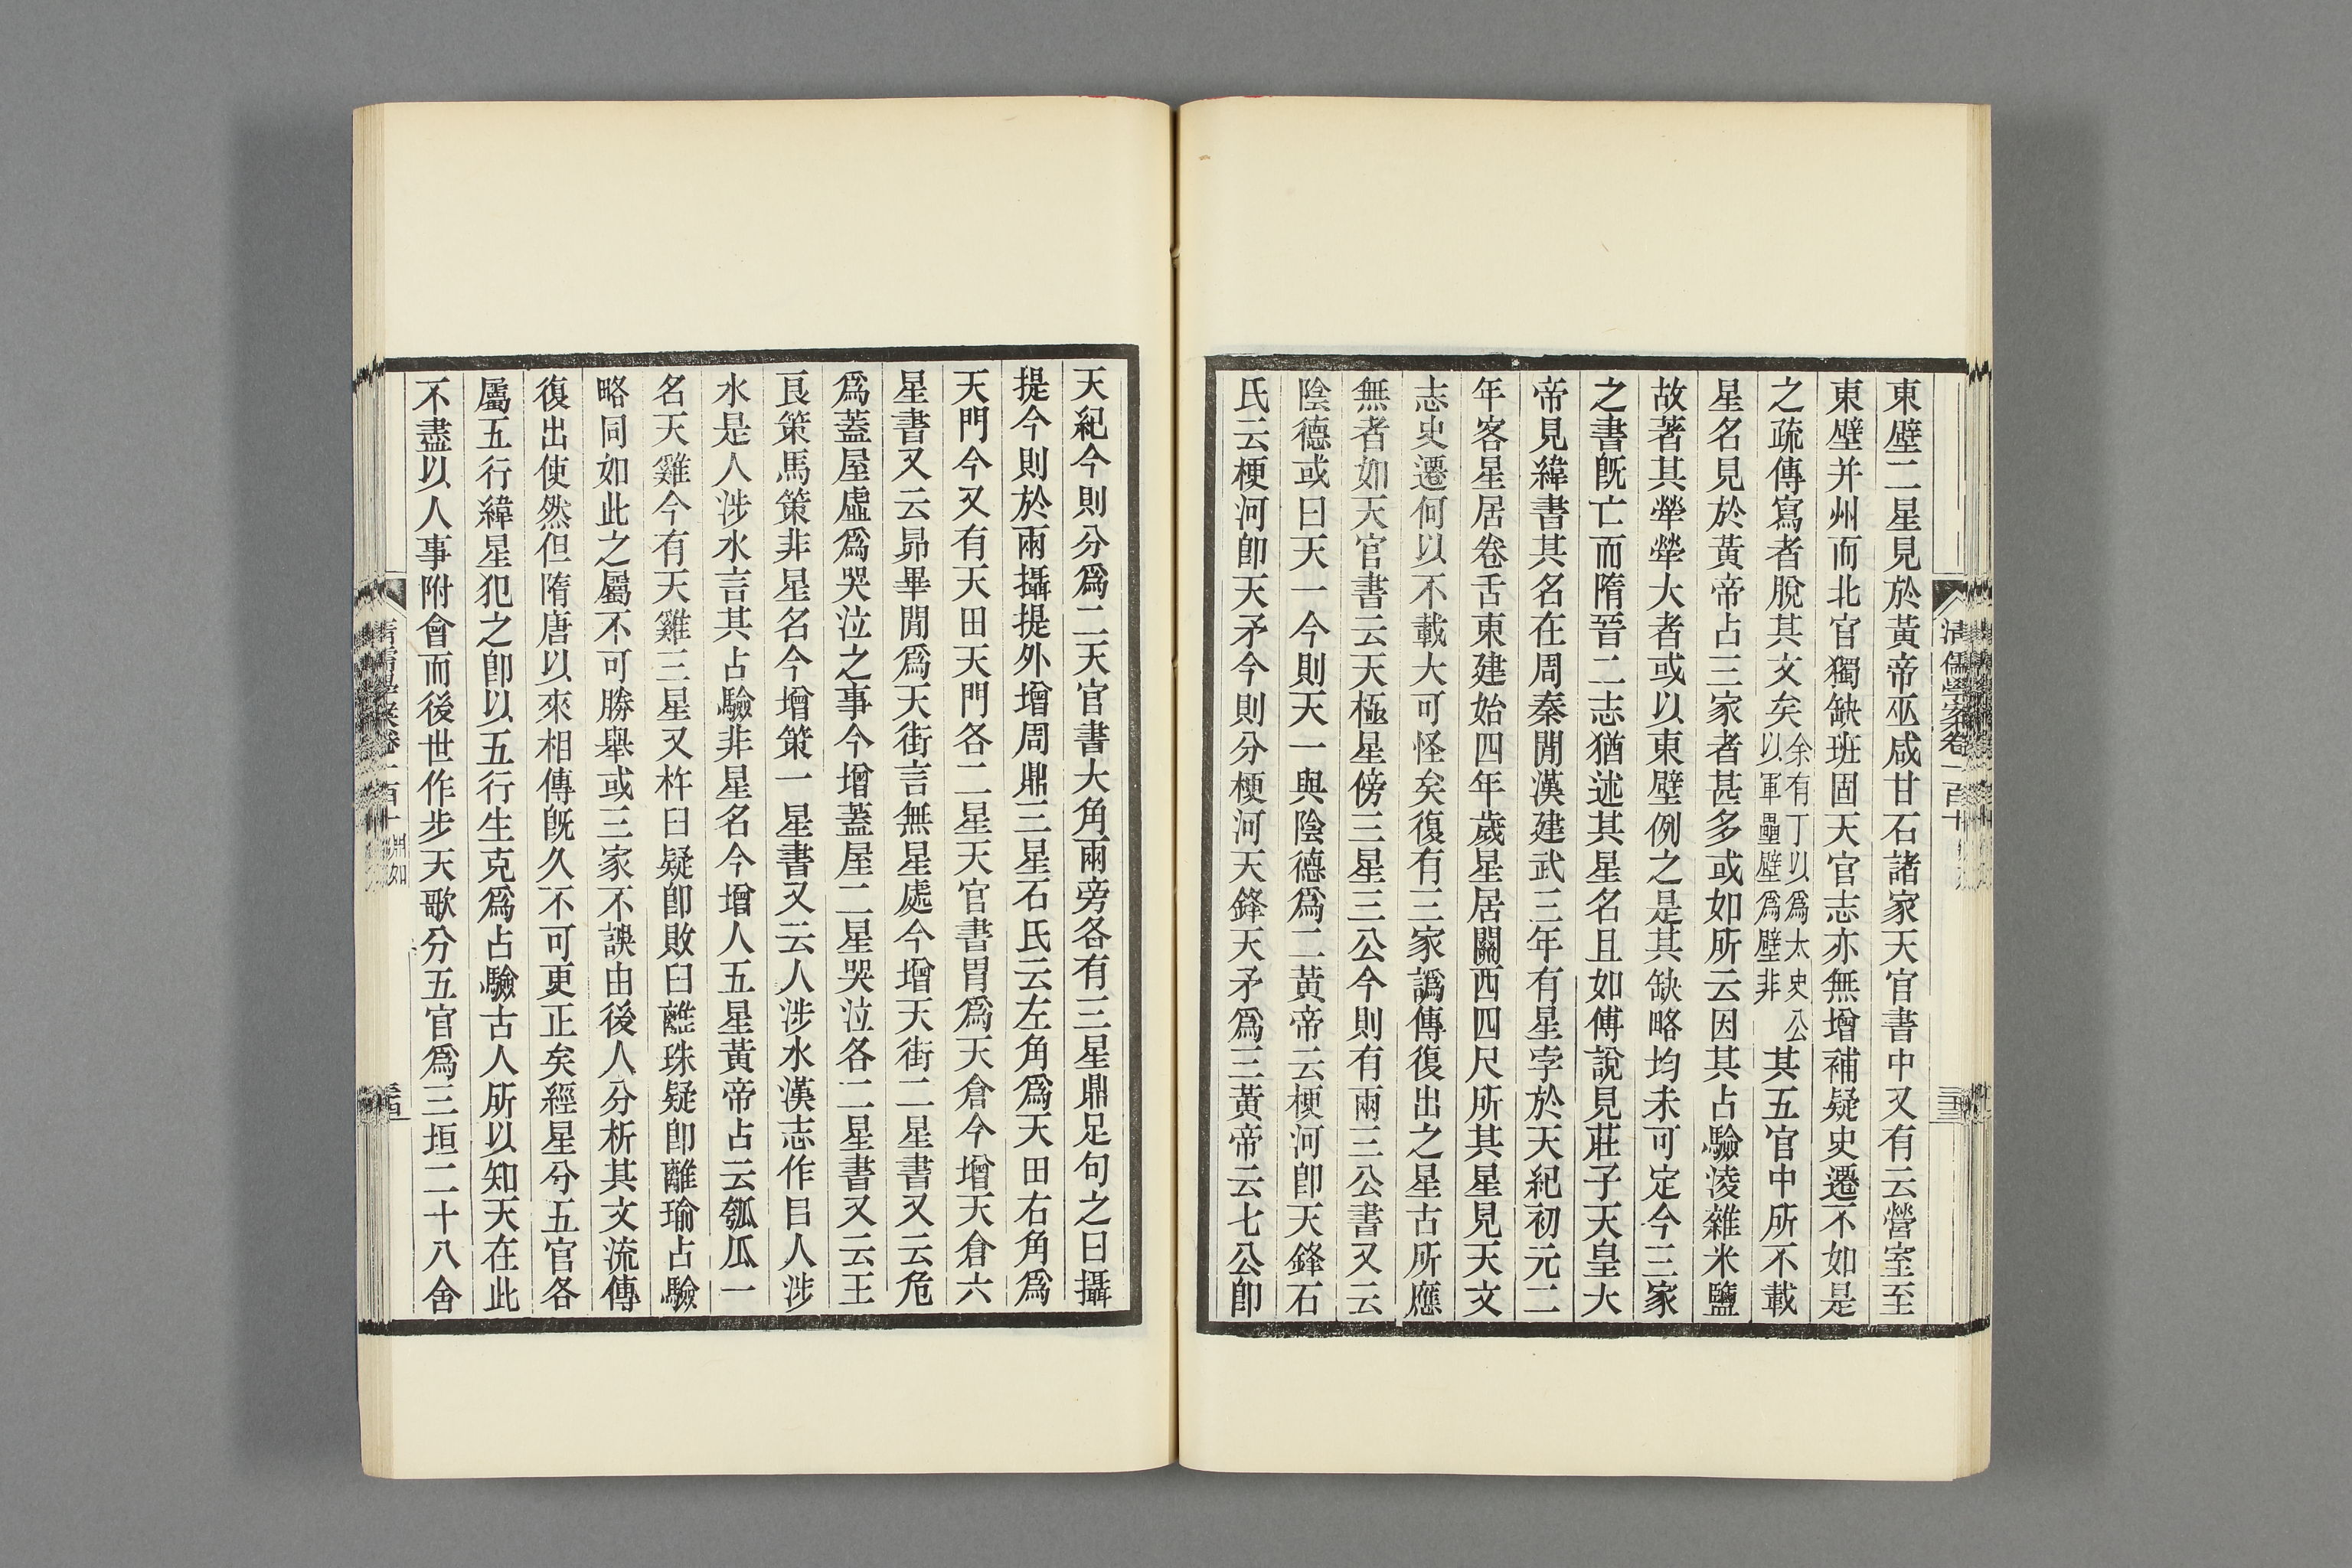 東壁二星見於黃帝巫咸甘石諸家天官書中又有云營室至
東壁并州而北官獨缺班固天官志亦無增補疑史遷不如是
之疏傳寫者脫其文矣余有丁以爲太史公以軍壘壁爲壁非其五官中所不載
星名見於黃帝占三家者甚多或如所云因其占驗淩雜米鹽
故著其犖犖大者或以東壁例之是其缺略均未可定今三家
之書旣亡而隋晉二志猶述其星名且如傅說見莊子天皇大
帝見緯書其名在周秦閒漢建武三年有星孛於天紀初元二
年客星居卷舌東建始四年歲星居關西四尺所其星見天文
志史遷何以不載大可怪矣復有三家譌傳復出之星古所應
無者如天官書云天極星傍三星三公今則有兩三公書又云
陰德或曰天一今則天一與陰德爲二黃帝云梗河卽天鋒石
氏云梗河卽天矛今則分梗河天鋒天矛爲三黃帝云七公卽
清儒學案卷一百十
天紀今則分爲二天官書大角兩旁各有三星鼎足句之曰攝
提今則於兩攝提外增周鼎三星石氏云左角爲天田右角爲
天門今又有天田天門各二星天官書胃爲天倉今增天倉六
星書又云昴畢閒爲天街言無星處今增天街二星書又云危
爲蓋屋虛爲哭泣之事今增蓋屋二星哭泣各二星書又云王
良策馬策非星名今增策一星書又云人涉水漢志作目人涉
水是人涉水言其占驗非星名今增人五星黃帝占云瓠瓜一
名天雞今有天雞三星又杵臼疑卽敗臼離珠疑卽離瑜占驗
略同如此之屬不可勝舉或三家不誤由後人分析其文流傳
復出使然但隋唐以來相傳旣久不可更正矣經星分五官各
屬五行緯星犯之卽以五行生克爲占驗古人所以知天在此
不盡以人事附會而後世作步天歌分五官爲三垣二十八舍